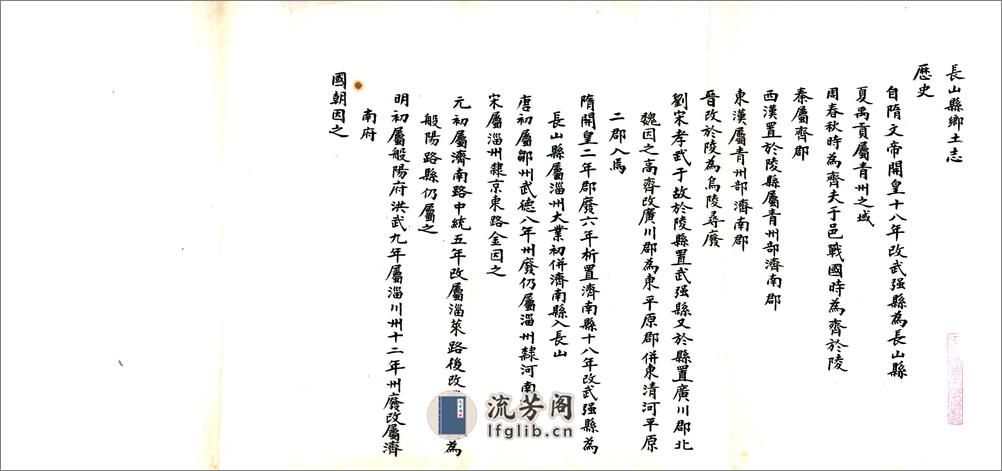 長山縣鄉土志
歷史
自隋文帝開皇十八年改武强縣為長山縣
夏禹貢屬青州之域
周春秋時為齊夫于邑戰國時為齊於陵
秦屬齊郡
西漢置於陵縣屬青州部濟南郡
東漢屬青州部濟南郡
晉改於陵為烏陵尋廢
劉宋孝武于故於陵縣置武强縣又於縣置廣川郡北
魏因之高齊改廣川郡為東平原郡併東清河平原
二郡入焉
隋開皇二年郡廢六年析置濟南縣十八年改武强縣為
長山縣屬淄州大業初併濟南縣入長山
唐初屬鄒州武德八年州廢仍屬淄州隸河南
宋屬淄州隸京東路金因之
元初屬濟南路中統五年改屬淄萊路後改為
般陽路縣仍屬之
明初屬般陽府洪武九年屬淄川州十二年州廢改屬濟
南府
國朝因之
流芳阁
lfglib.cn